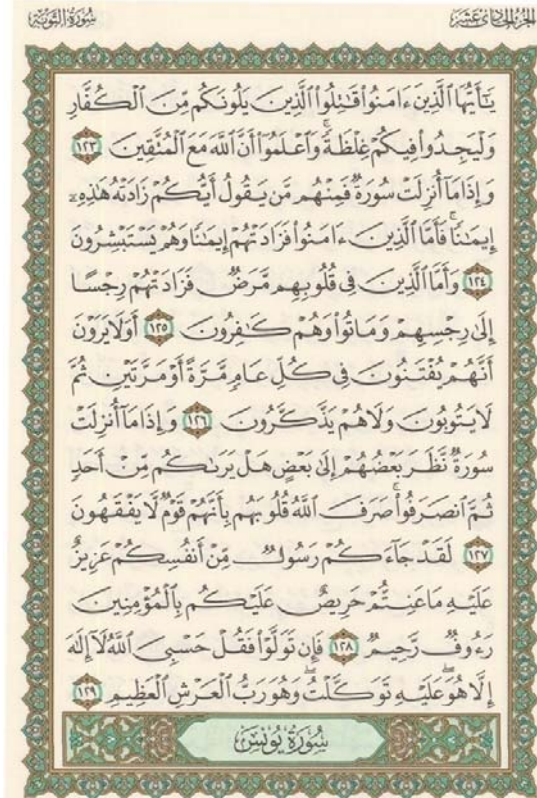 سُورَةُ التَّوْبَةِ
الجُزْءُ الحَادِي عَشَرَ
يَٰٓأَيُّهَا ٱلَّذِينَ ءَامَنُوا۟ قَٰتِلُوا۟ ٱلَّذِينَ يَلُونَكُم مِّنَ ٱلْكُفَّارِ
وَلْيَجِدُوا۟ فِيكُمْ غِلْظَةً ۚ وَٱعْلَمُوٓا۟ أَنَّ ٱللَّهَ مَعَ ٱلْمُتَّقِينَ ١٢٣
وَإِذَا مَآ أُنزِلَتْ سُورَةٌ فَمِنْهُم مَّن يَقُولُ أَيُّكُمْ زَادَتْهُ هَٰذِهِۦٓ
إِيمَٰنًا ۚ فَأَمَّا ٱلَّذِينَ ءَامَنُوا۟ فَزَادَتْهُمْ إِيمَٰنًا وَهُمْ يَسْتَبْشِرُونَ
١٢٤ وَأَمَّا ٱلَّذِينَ فِى قُلُوبِهِم مَّرَضٌ فَزَادَتْهُمْ رِجْسًا
إِلَىٰ رِجْسِهِمْ وَمَاتُوا۟ وَهُمْ كَٰفِرُونَ ١٢٥ أَوَلَا يَرَوْنَ
أَنَّهُمْ يُفْتَنُونَ فِى كُلِّ عَامٍ مَّرَّةً أَوْ مَرَّتَيْنِ ثُمَّ
لَا يَتُوبُونَ وَلَا هُمْ يَذَّكَّرُونَ ١٢٦ وَإِذَا مَآ أُنزِلَتْ
سُورَةٌ نَّظَرَ بَعْضُهُمْ إِلَىٰ بَعْضٍ هَلْ يَرَىٰكُم مِّنْ أَحَدٍ
ثُمَّ ٱنصَرَفُوا۟ ۚ صَرَفَ ٱللَّهُ قُلُوبَهُم بِأَنَّهُمْ قَوْمٌ لَّا يَفْقَهُونَ
١٢٧ لَقَدْ جَآءَكُمْ رَسُولٌ مِّنْ أَنفُسِكُمْ عَزِيزٌ
عَلَيْهِ مَا عَنِتُّمْ حَرِيصٌ عَلَيْكُم بِٱلْمُؤْمِنِينَ
رَءُوفٌ رَّحِيمٌ ١٢٨ فَإِن تَوَلَّوْا۟ فَقُلْ حَسْبِىَ ٱللَّهُ لَآ إِلَٰهَ
إِلَّا هُوَ ۖ عَلَيْهِ تَوَكَّلْتُ ۖ وَهُوَ رَبُّ ٱلْعَرْشِ ٱلْعَظِيمِ ١٢٩
سُورَةُ يُونُسَ